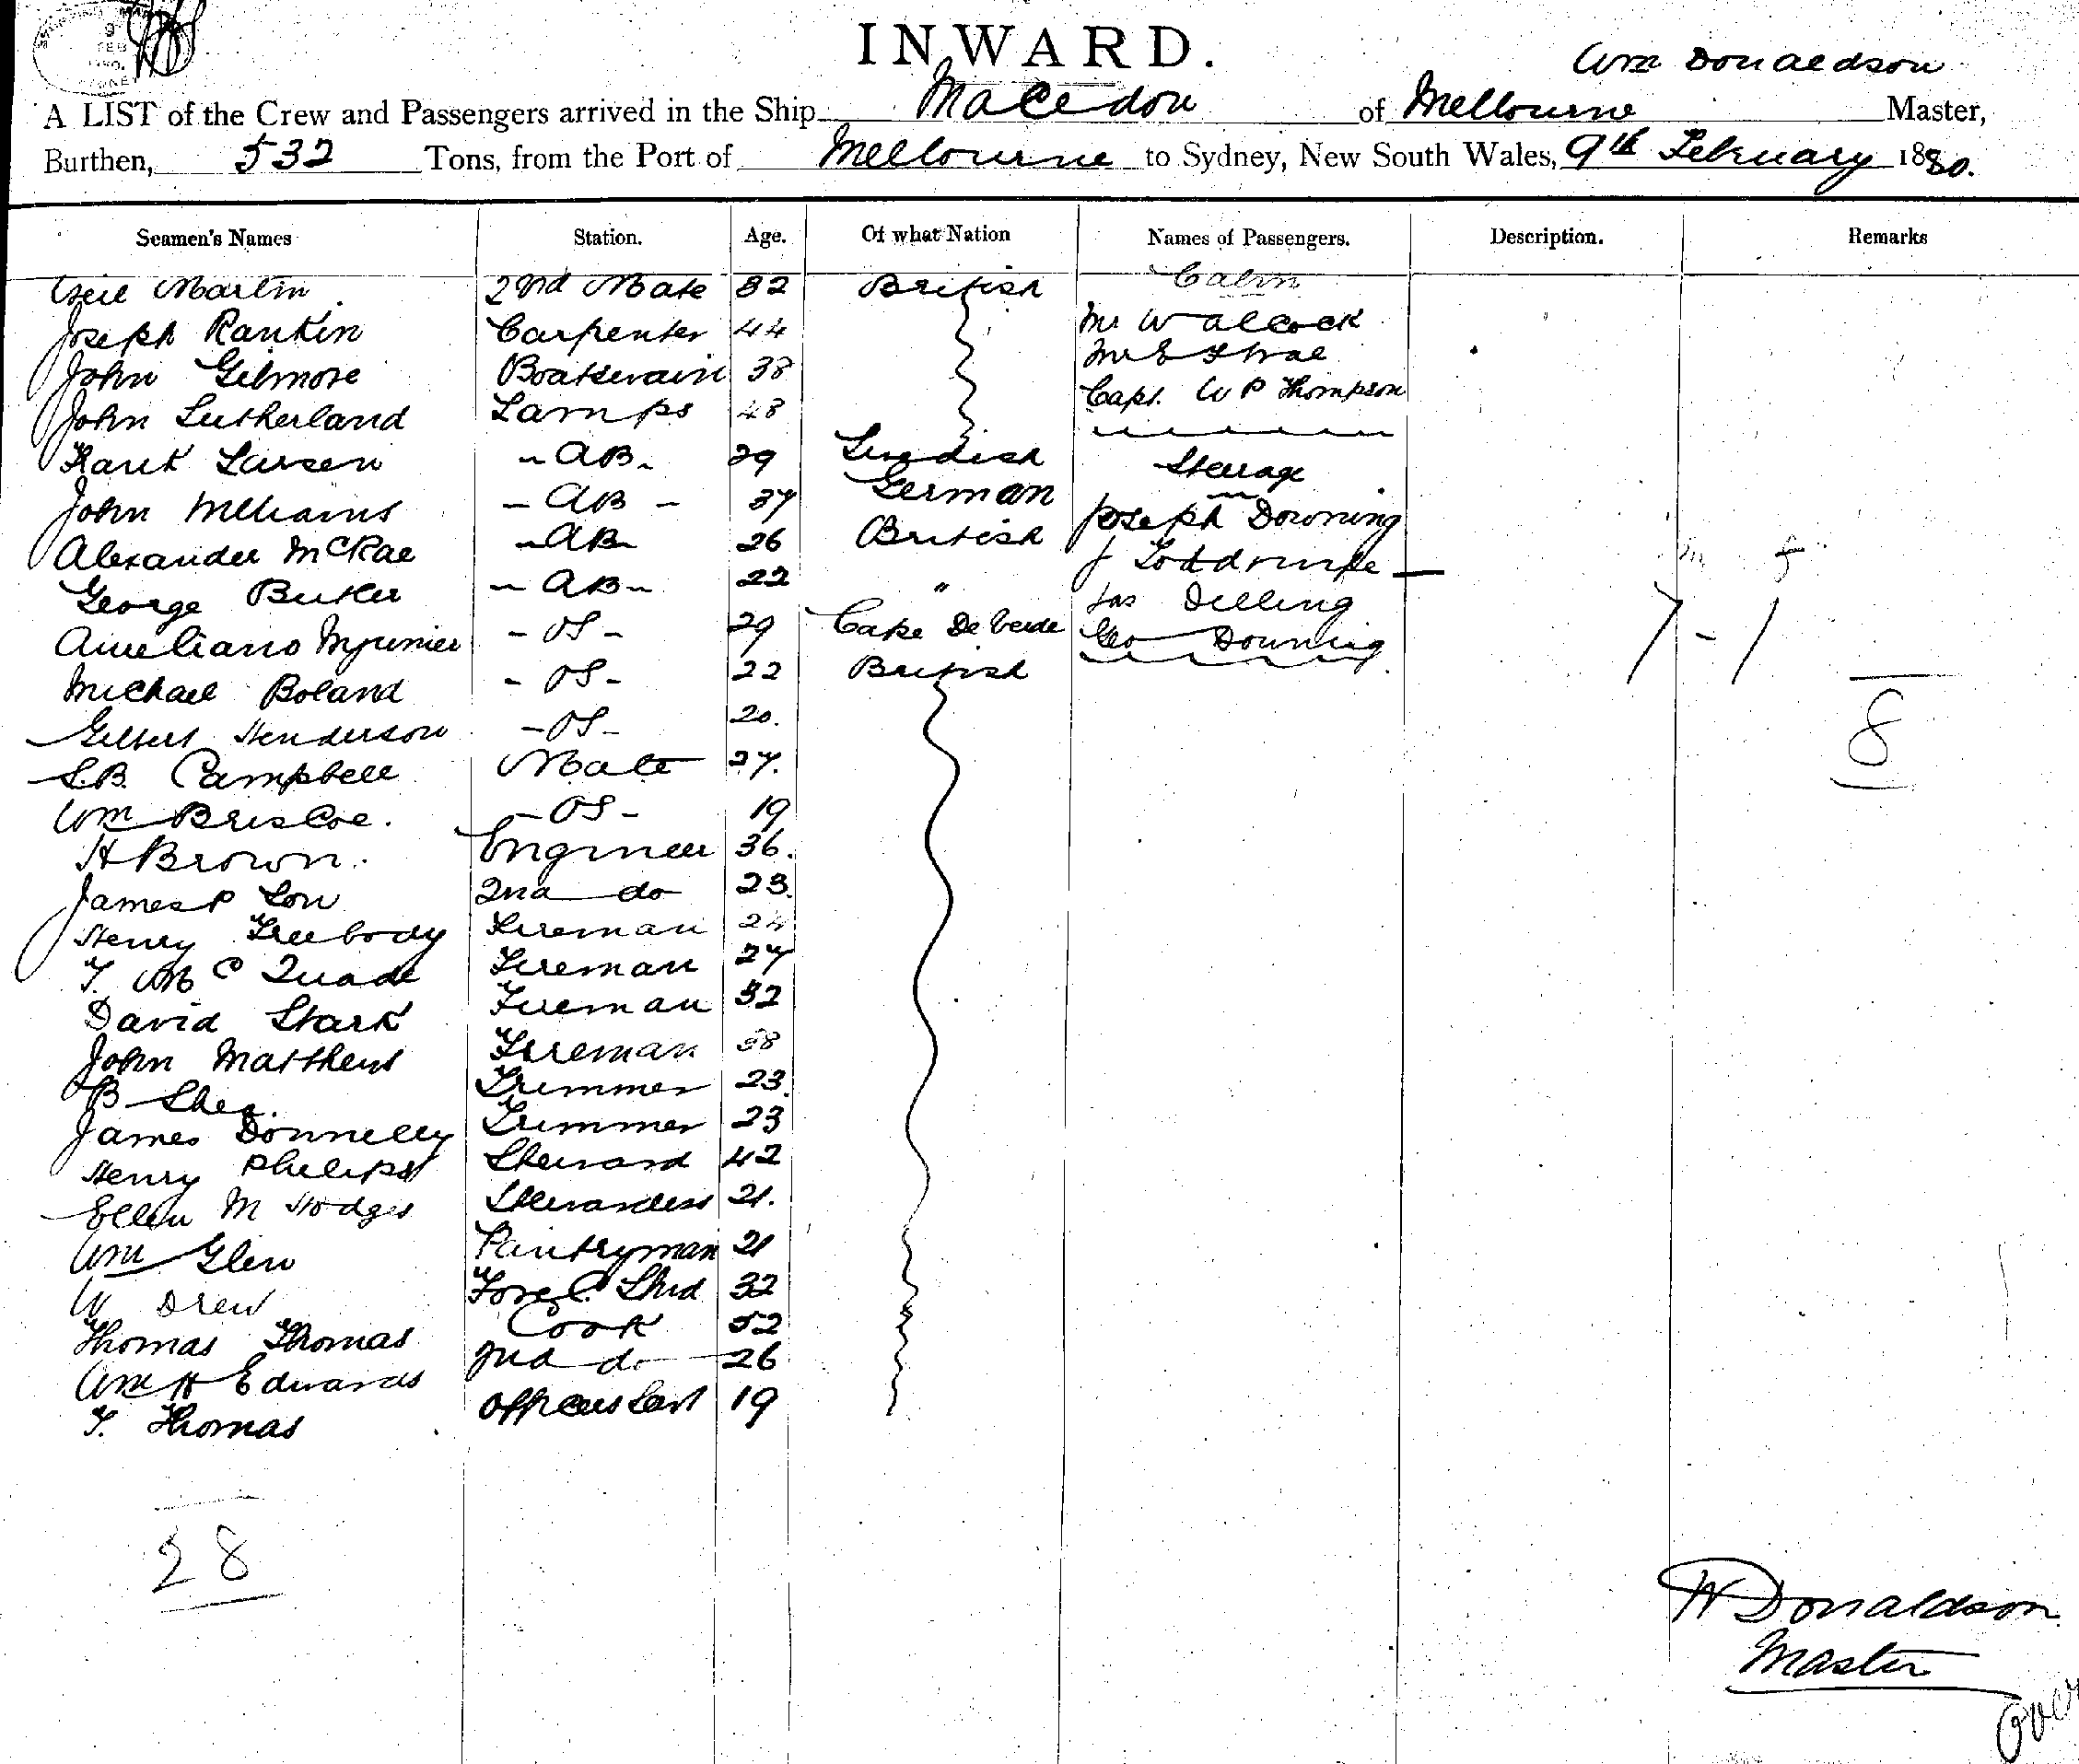 9
FEB
INWARD.
Wm Donaldson
A LIST of the Crew and Passengers arrived in the Ship Macedon of Melbourne Master,
Burthen, 532 Tons, from the Port of Melbourne to Sydney, New South Wales, 9th February 1880.
Seamen's Names Station. Age. Of what Nation Names of Passengers. Description. Remarks
Martin 2nd Mate 32 British Cabin
Joseph Rankin Carpenter 44 Mr Walcock
John Gilmore Boatswain 38 Mr
John Sutherland Lamps 48 Capt. W P Thompson
Frank Larsen AB 29 Swedish Steerage
John Williams - AB - 37 German Joseph Downing
Alexander McRae - AB - 26 British J
George Butler - AB - 22 " Jas Dilling
Aureliano - OS - 29 Cape De Verde Geo Downing
Michael Boland - OS - 22 British
Gilbert Henderson - OS - 20.
S.B. Campbell Mate 27.
Wm Briscoe. - OS - 19
H Brown. Engineer 36.
James P Low 2nd do 23.
Henry Freebody Fireman 24
T. McQuade Fireman 27
David Stark Fireman 32
John Matthews Fireman 38
B Shea. Trimmer 23.
James Donnelly Trimmer 23
Henry Philips Steward 42
Ellen M Hodges Stewardess 21.
Wm Glen Pantryman 21
W Drew Fore C. Stwd 32
Thomas Thomas Cook 52
Wm H Edwards 2nd do 26
T. Thomas Officers Servt 19
m f
7 - 1
8
28
W Donaldson
Master
Over